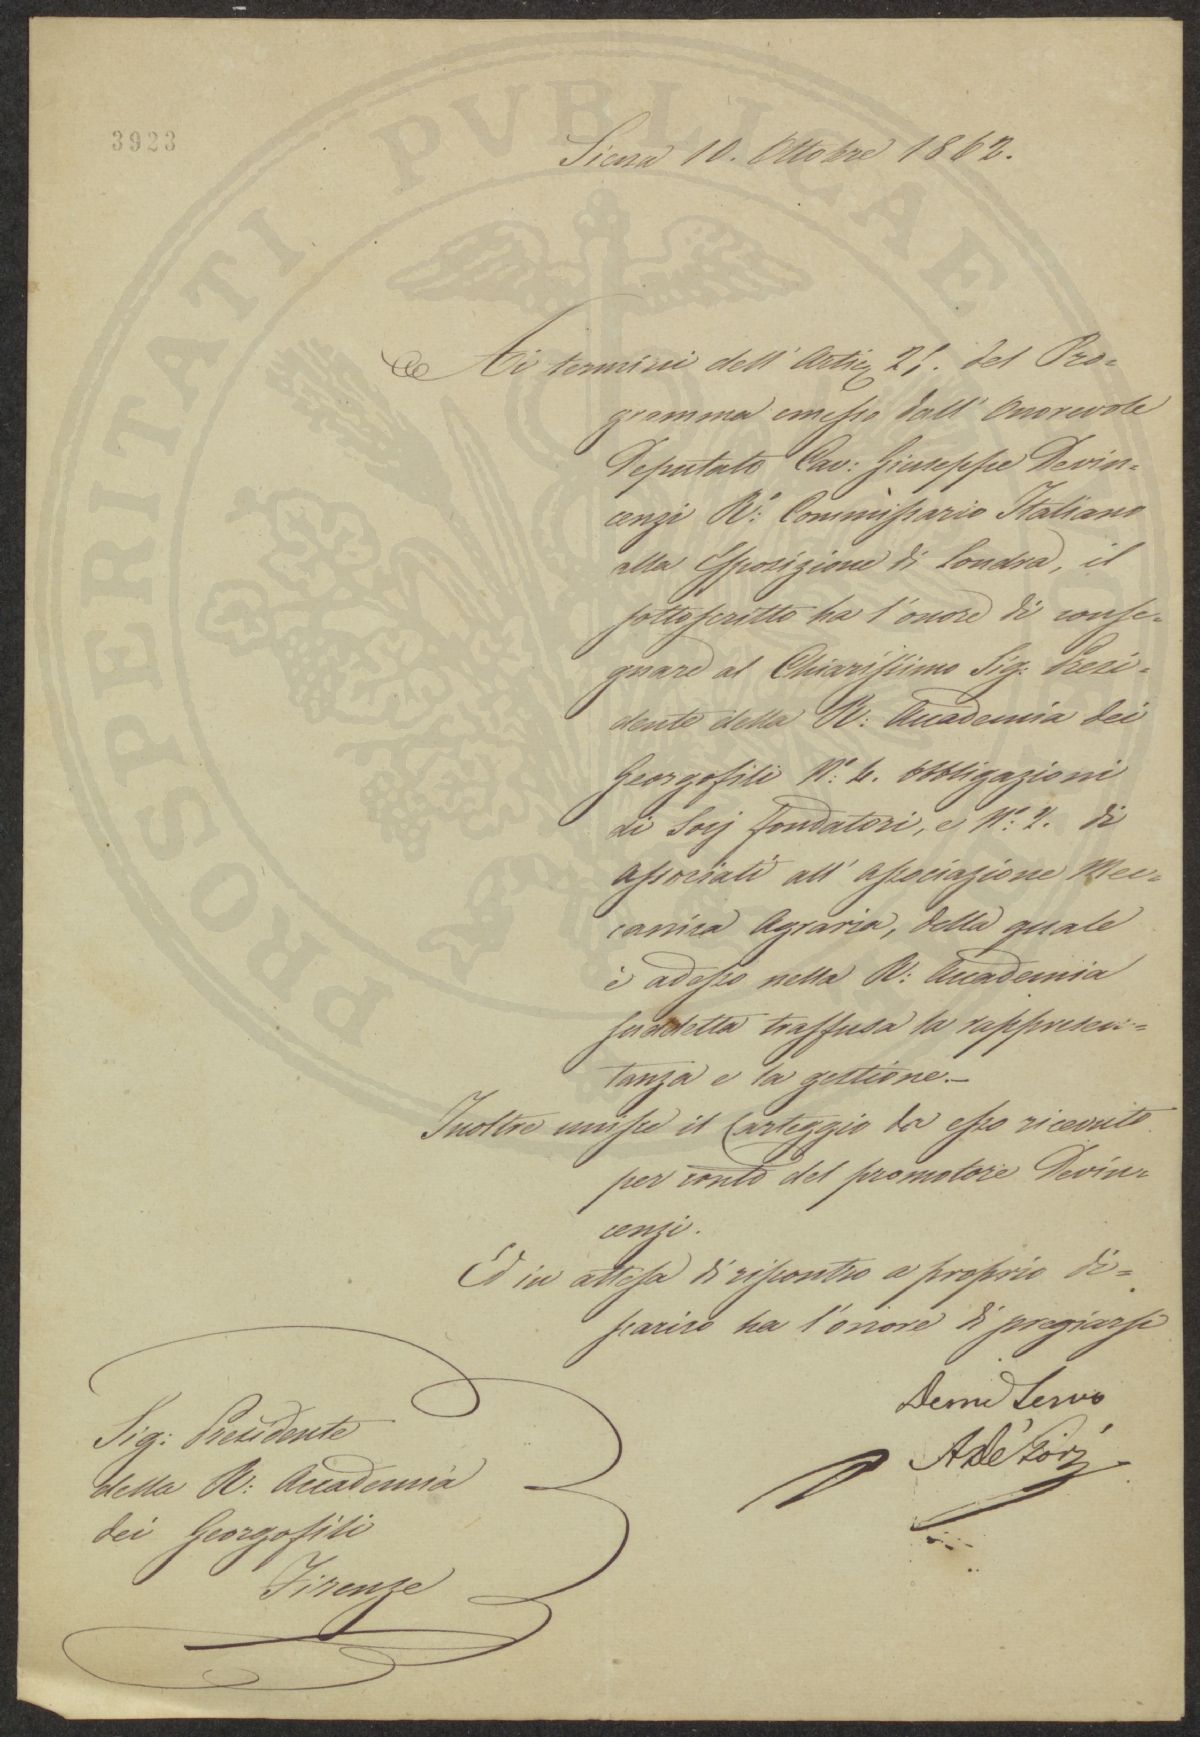 PROSPERITATI PVBLICAE
3923
Siena 10. Ottobre 1862.
Ai termini dell' Artic. del Pro=
gramma emesso dall' Onorevole
Deputato Cav: Giuseppe Devin=
cenzi R.º Commissario Italiano
alla Esposizione di Londra, il
sottoscritto ha l'onore di conse=
gnare al Chiarissimo Sig: Presi=
dente della R: Accademia dei
Georgofili N.º Obbligazioni
di Socj fondatori, e N.º 2. di
Associati all' Associazione Mec=
canica Agraria, della quale
è adesso nella R: Accademia
suddetta trasfusa la rappresen=
tanza e la gestione.—
Inoltre unisce il Carteggio da esso ricevuto
per conto del promotore Devin=
cenzi.
Ed in attesa di riscontro a proprio di=
scarico ha l'onore di pregiarsi
Servo
Sig: Presidente
della R: Accademia
dei Georgofili
Firenze